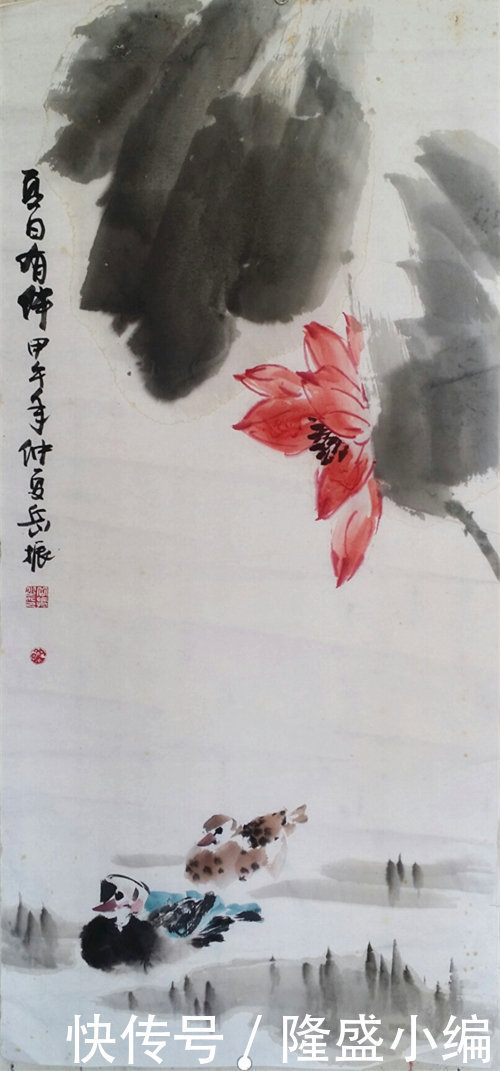 夏日有伴 甲午年仲夏岳振
快传号 / 隆盛小编